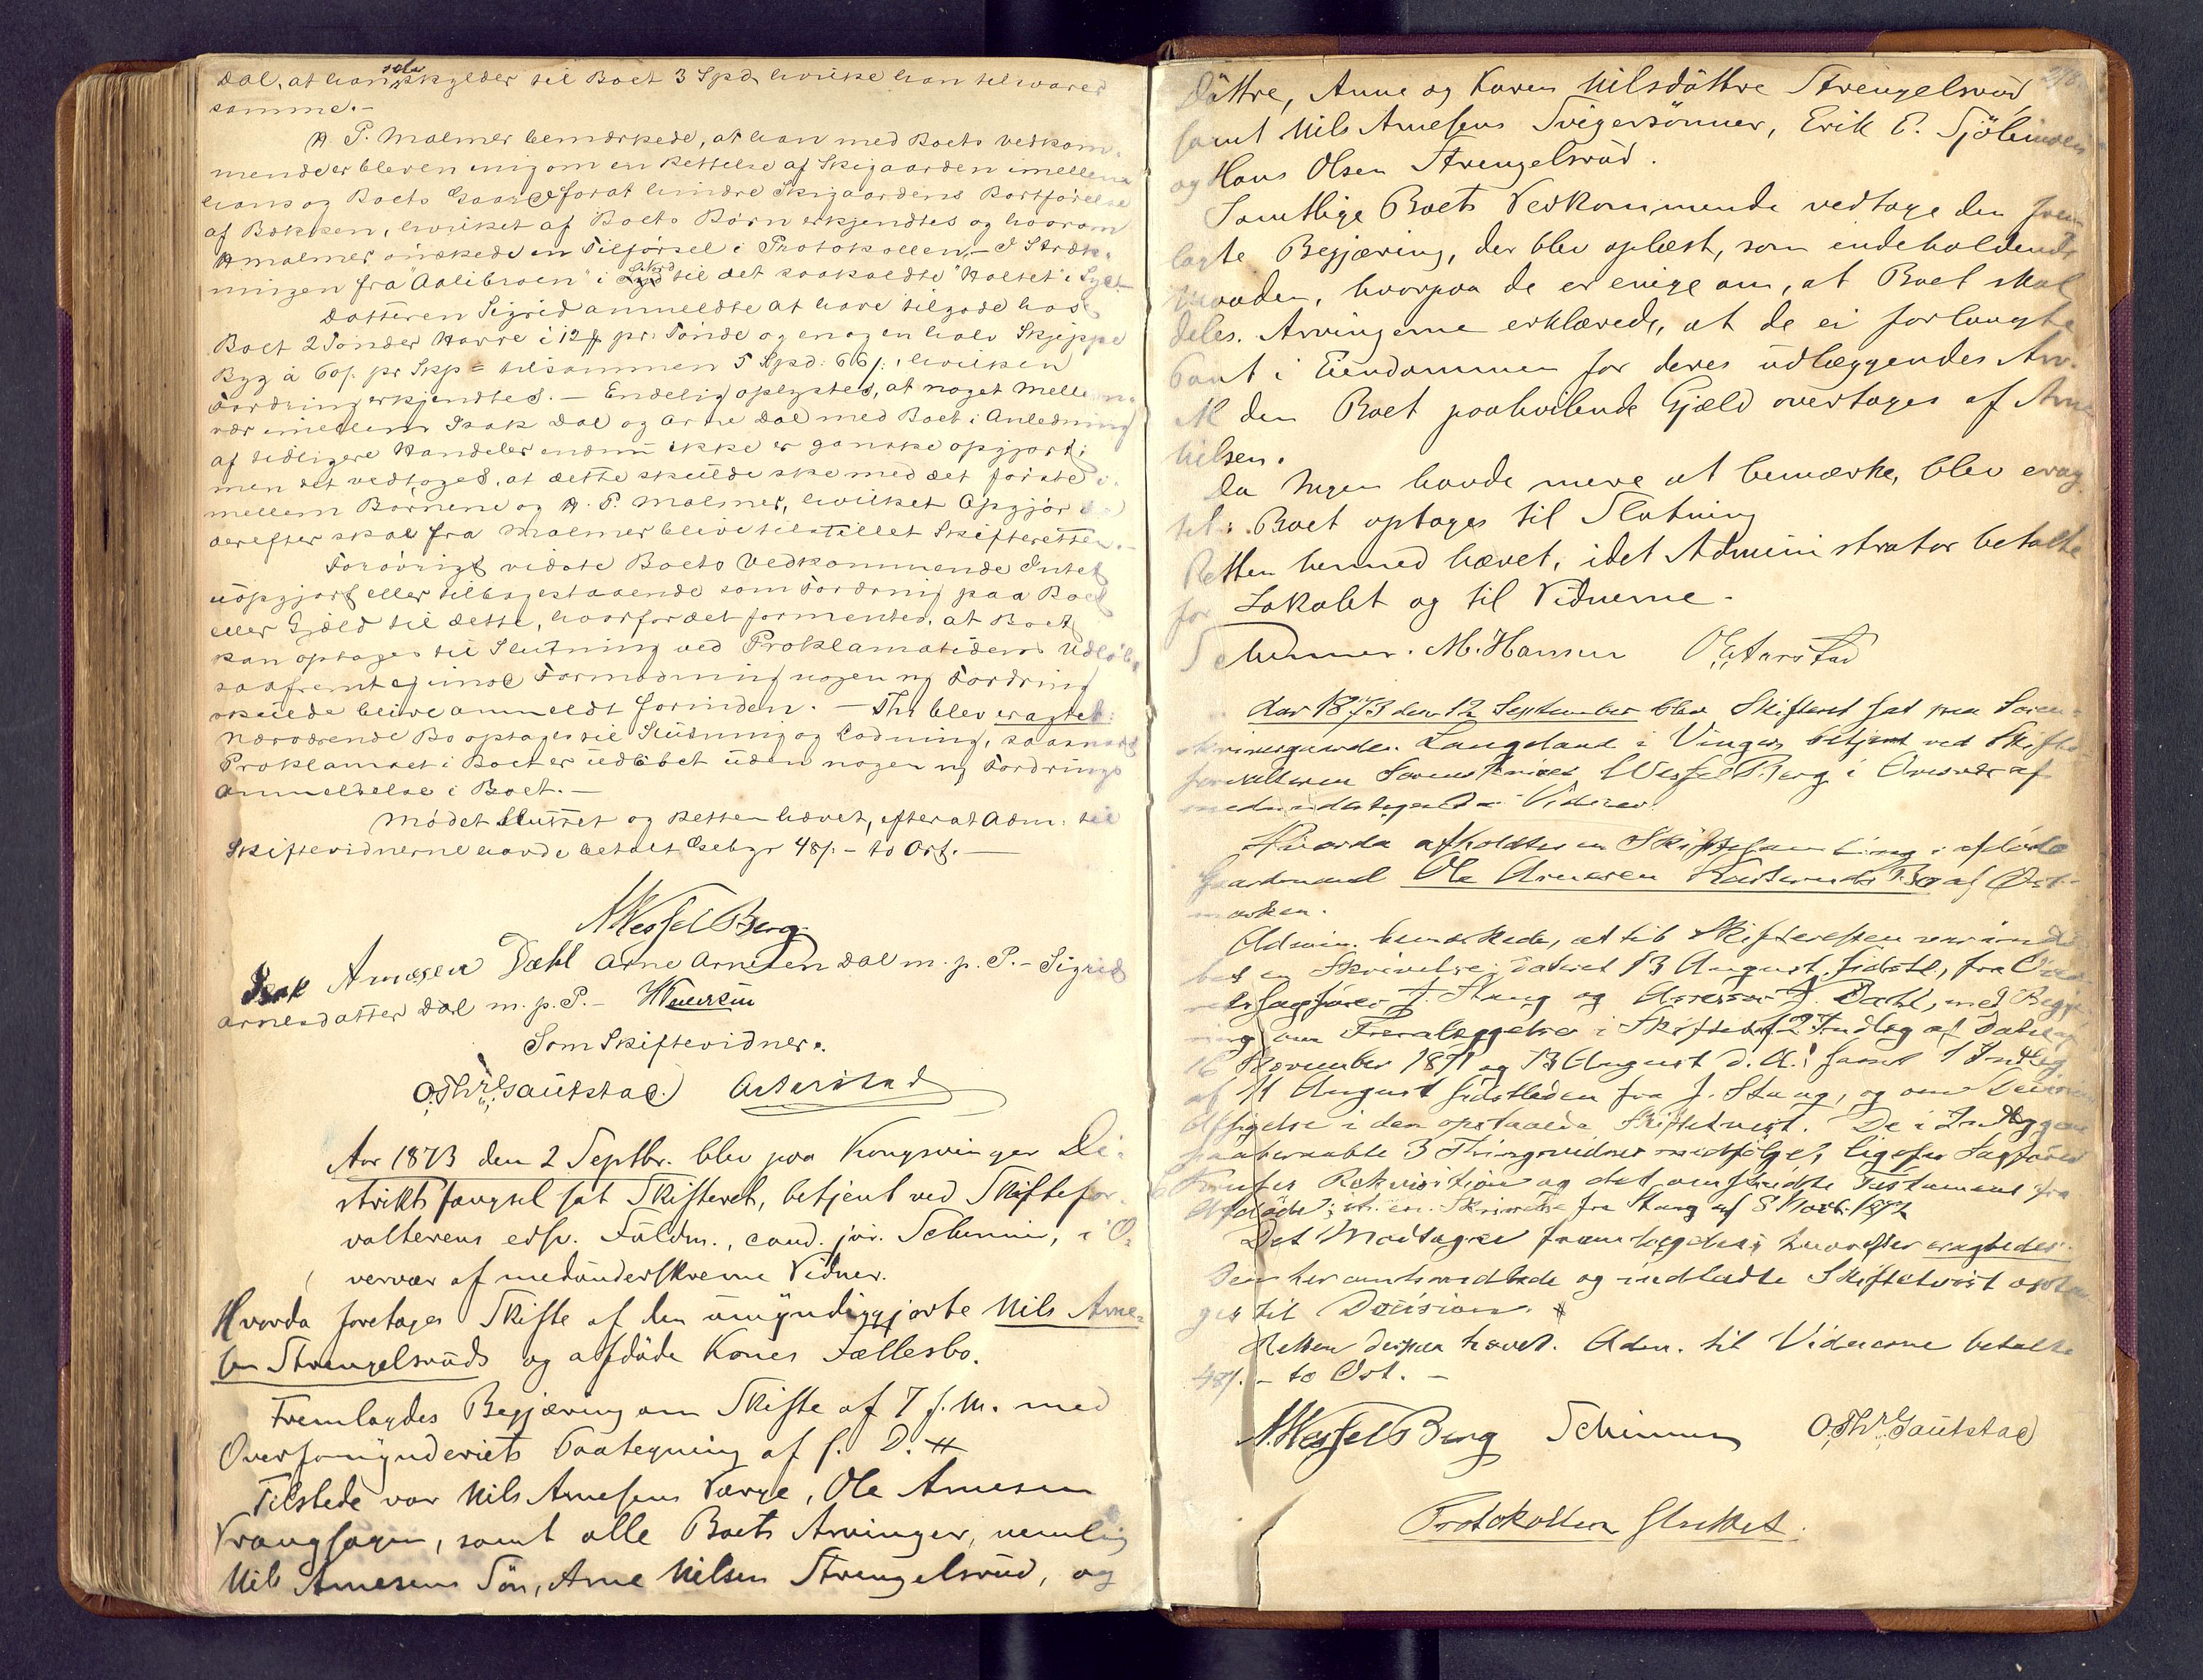 Dal, at han selv skylder til Boet 3 Spd. hvilke han tilsvarer
samme.-
A. P. Malmer bemærkede, at han med Boets Vedkom-
mende er bleven enig om en Rettelse af Skigaarden imellem
hans og Boets Gaard for at hindre Skigaardens Bortförelse
af Bækken, hvilket af Boets Börn erkjendtes og hvorom
Malmer önskede en Tilförsel i Protokollen,- I Stræk-
ningen fra "Aalibroen" i til det saakaldte "Holtet" i
Datteren Sigrid anmeldte at have tilgode hos
Boet 2 Tönder Havre à 12 pr. Tönde og en og en halv Skjeppe
Byg à 60 pr Skp = tilsammen 5 Spd. 66, hvilken
Fordring erkjendtes. - Endelig oplystes, at noget Mellem-
vær imellem Isak Dal og Arne Dal med Boet i Anledning
af tidligere Handeler endnu ikke er ganske opgjort;
men det vedtoges, at dette skulde ske med det förste i-
mellem Börnene og A. P. Malmer, hvilket Opgjör
derefter skal fra Malmer blive tilstillet Skifteretten.-
Forövrigt vidste Boets Vedkommende Intet
uopgjort eller tilbagestaaende som Fordring paa Boet
eller Gjæld til dette, hvorfor det formentes, at Boet
kan optages til Slutning ved Proklamatidens Udlöb,
saafremt ej imod Formodning nogen ny Fordring
skulde blive anmeldt forinden. - Thi blev eragtet:
Nærværende Bo optages til Slutning og Lodning, saasnart
Proklamaet i Boet er udlöbet uden nogen ny Fordrings
Anmeldelse i Boet.-
Mödet sluttet og Retten hævet, efterat Adm. til
Skiftevidnerne havde betalt Gebyr 48 - to Ort. -
N Wessel Berg
Isak Arnesen Dahl Arne Arnesen Dal m. p. P. - Sigrid
Arnesdatter Dal m. p. P. -
Som Skiftevidner.
O. Thr. Gautstad.
Aar 1873 den 2 Septbr. blev paa Kongsvinger Di-
strikts fængsel sat Skifteret, betjent ved Skiftefor-
valterens edsv. Fuldm., cand. jur. Schinner, i O-
vervær af medunderskrevne Vidner.
Hvorda foretages Skifte af den umyndiggjorte Nils Arne-
sen Strengelsruds og afdöde Kones Fællesbo.
Fremlagdes Begjæring om Skifte af 7 f. M. med
Overformynderiets Paategning af s. D. #
Tilstede var Nils Arnesens Værge, Ole Arnesen
Vrangsagen, samt alle Boets Arvinger, nemlig
Nils Arnesens Sön, Arne Nilsen Strengelsrud, og
Döttre, Anne og Karen Nilsdöttre Strengelsrud
samt Nils Arnesens Svigersönner, Erik E.
og Hans Olsen Strengelsrud.
Samtlige Boets Vedkommende vedtage den frem-
lagte Begjæring, der blev oplæst, som indeholdende
Maaden, hvorpaa de er enige om, at Boet skal
deles. Arvingerne erklærede, at de ei forlangte
Pant i Eiendommen for deres udlæggendes Arv.
Al den Boet paahvilende Gjæld overtages af Arne
Nilsen.
Da Ingen havde mere at bemærke, blev erag-
tet: Boet optages til Slutning
Retten hermed hævet, idet Administrator betalte
for Lokalet og til Vidnerne -
Schinner. M. Hansen O Aarstad
Aar 1873 den 12 September blev Skifteret sat paa Soren-
skrivergaarden Langeland i Vinger betjent ved Skifte-
forvalteren Sorenskriver Wessel Berg i Overvær af
medundertegnede Vidner.
Hvorda afholdtes en Skiftesamling i afdöde
Gaardmand Ole Arnesen Bo af Øst-
marken.
Admin. bemærkede, at til Skifteretten var ind-
en Skrivelse, dateret 13 August sidstl., fra
Sagförer J. Stang og Assessor J. Dahl, med Begjæ-
ring om Fremlæggelse i Skifteret 2 Indlæg af Datum
16 November 1871 og 13 August d. A. samt 1 Indlæg
af 11 August sidstleden fra J. Stang, og om Decisions
Afsigelse i den opstaaede Skiftetvist. De i Indlæggene
paaberaabte 3 Thingsvidner medfölge, ligesom Sagförer
Rekvisition og det omtvistede Testament fra
Afdöde; en Skrivelse fra Stang af 8 1872
Det Modtagne fremlagdes; hvorefter eragtedes:
Den her omhandlede og indladte Skiftetvist opta-
ges til Decision. #
Retten derpaa hævet. Adm. til Vidnerne betalte
48 - to Ort. -
N. Wessel Berg Schinner O. Thr. Gautstad
Protokollen sluttet.